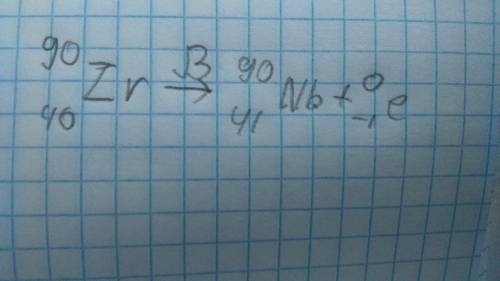 ⁹⁰₄₀Zr β→ ⁹⁰₄₁Nb + ⁰₋₁e